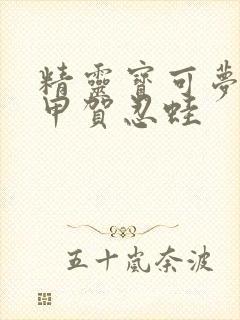 精靈寶可夢
甲賀忍蛙
五十嵐奈波